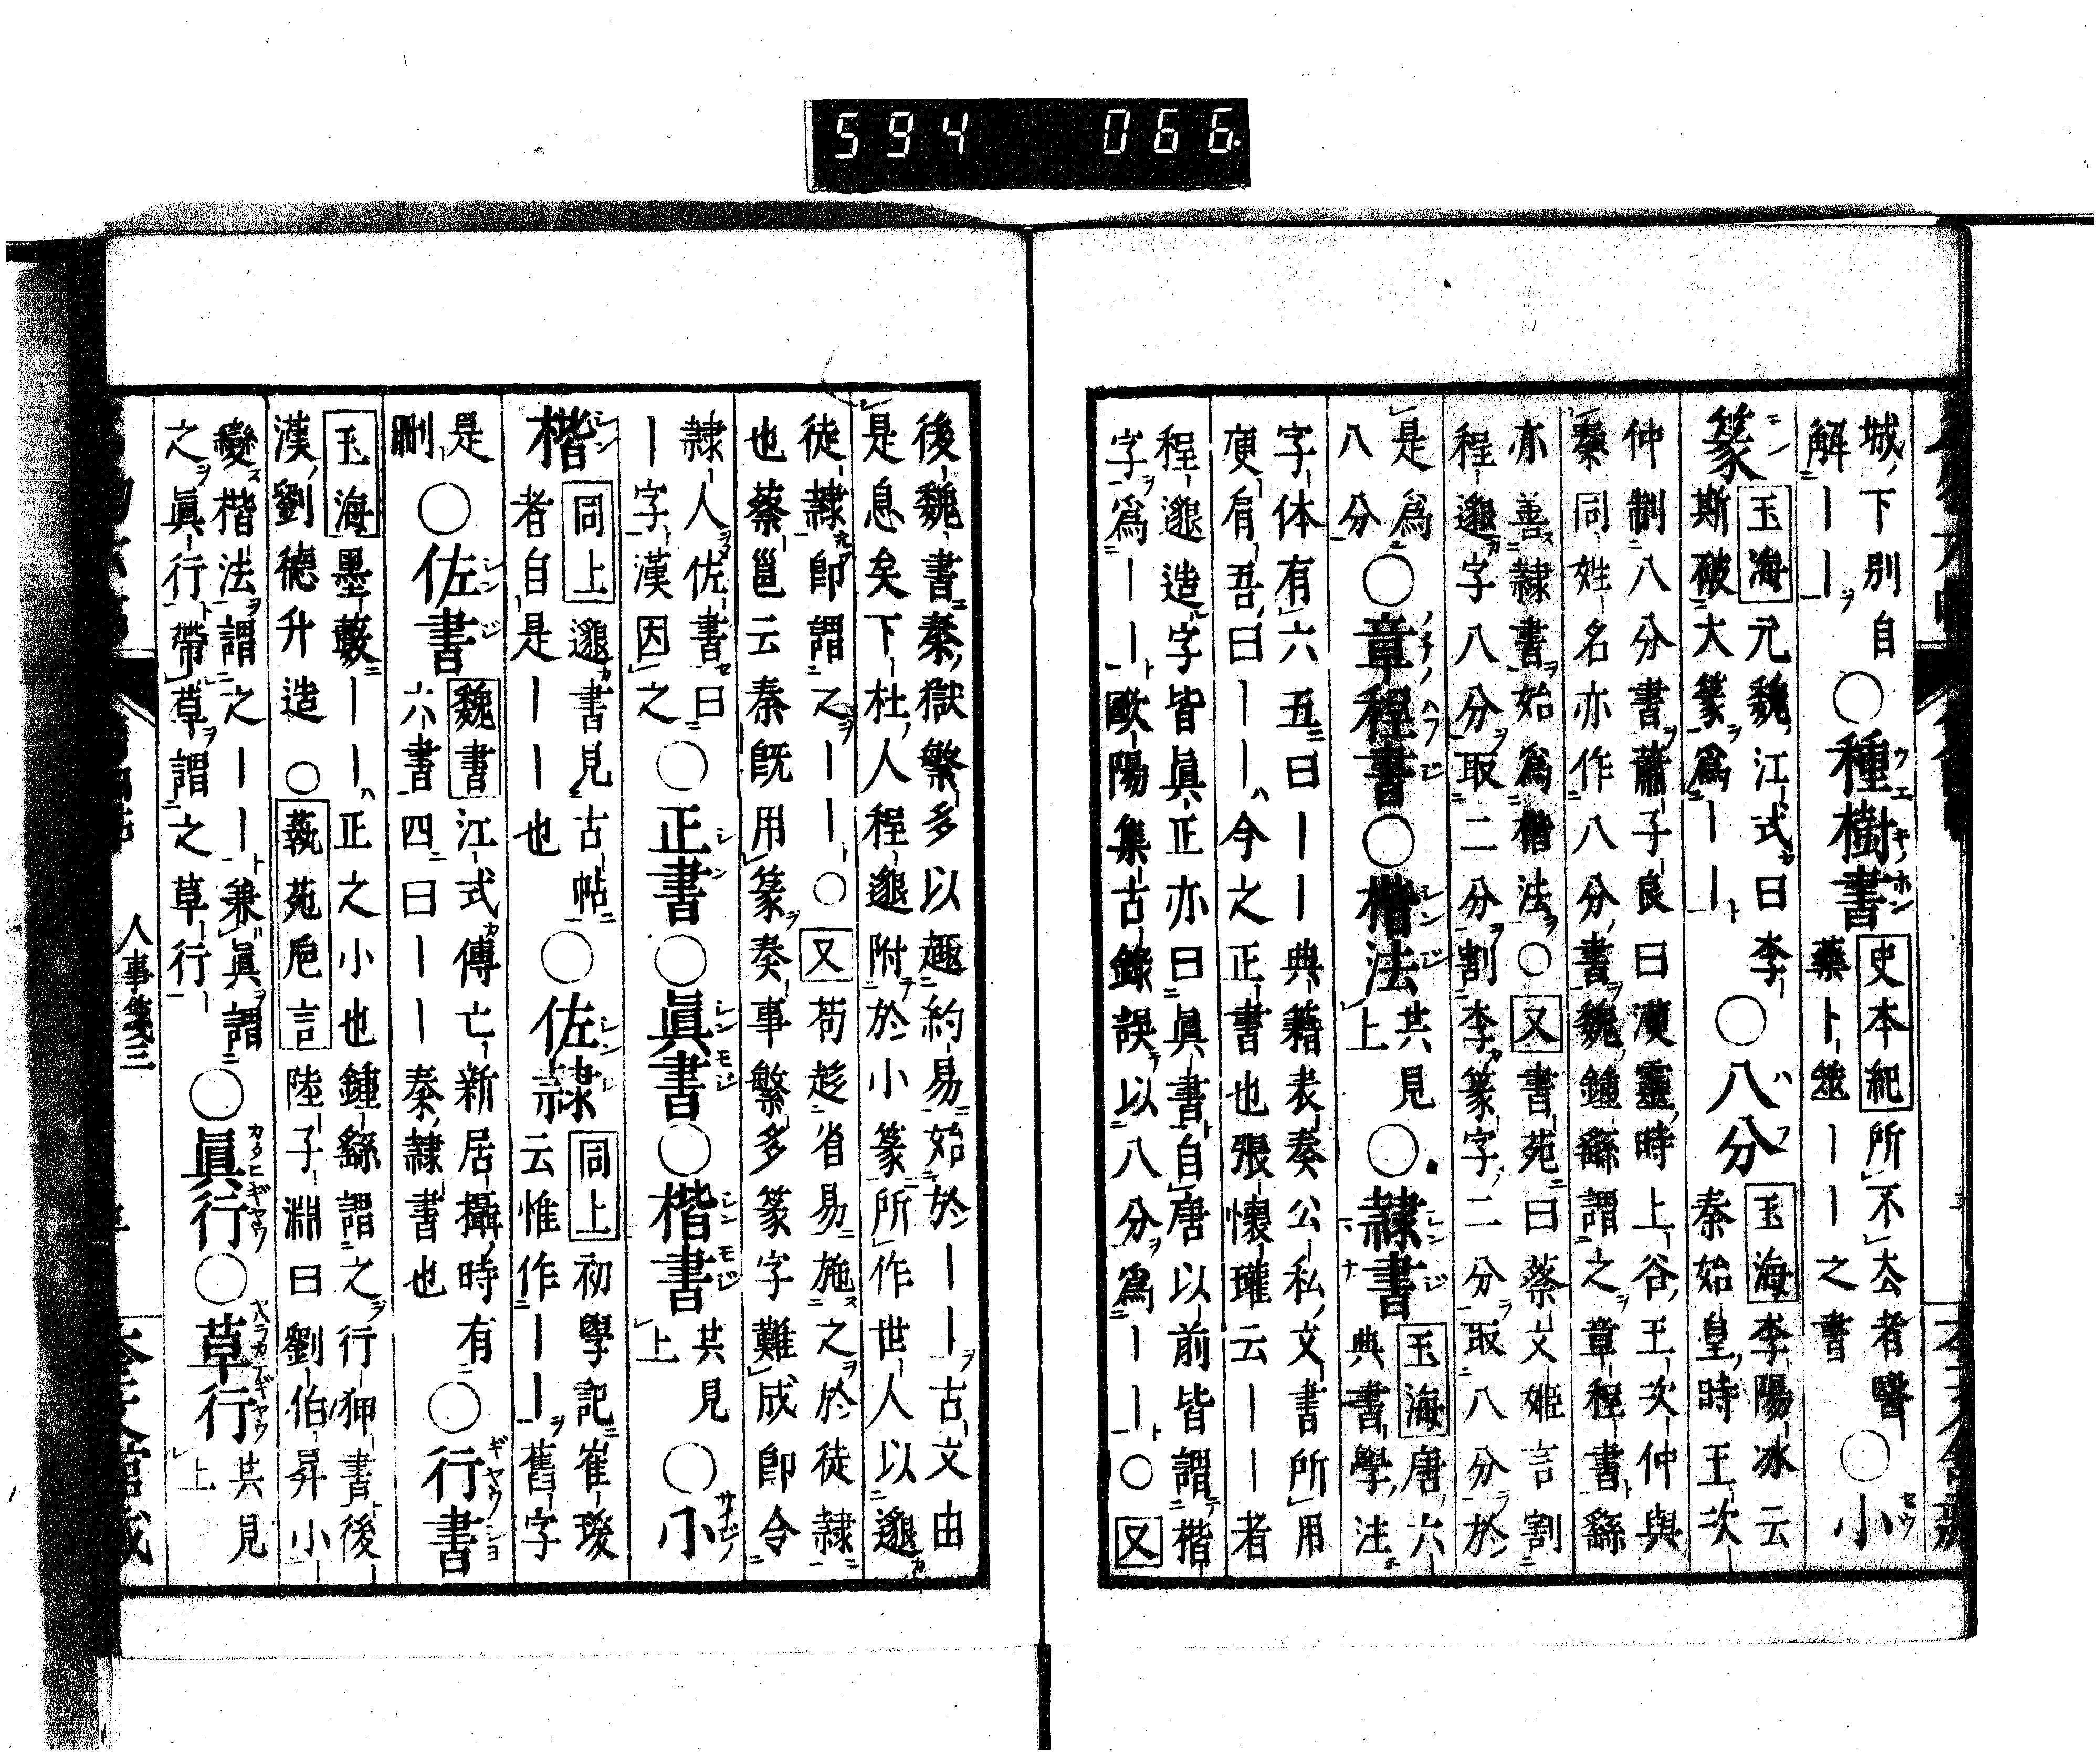 594 066
城下別自
解――
○種樹書
史本紀所不去者醫
藥卜筮――之書
○小
篆
玉海元魏江式曰李
斯破大篆爲――
○八分
玉海李陽冰云
秦始皇時王次
仲制八分書蕭子良曰漢靈時上谷王次仲與
秦同姓名亦作八分書魏鍾繇謂之章程書繇
亦善隷書始爲楷法○又書苑曰蔡文姬言割
程邈字八分取二分割李篆字二分取八分於
是爲
八分
○章程書○楷法
共見
上
○隷書
玉海唐六
典書學注
字体有六五曰――典籍表奏公私文書所用
庾肩吾曰――今之正書也張懷瓘云――者
程邈造字皆眞正亦曰眞書自唐以前皆謂楷
字爲――歐陽集古錄誤以八分爲――○又
後魏書秦獄繁多以趣約易始於――古文由
是息矣下杜人程邈附於小篆所作世人以邈
徒隷即謂之――○又苟趁省易施之於徒隷
也蔡邕云秦既用篆奏事繁多篆字難成即令
隷人佐書曰
―字漢因之
○正書○眞書○楷書
共見
上
○小
楷
同上邈書見古帖
者自是――也
○佐隷
同上初學記崔瑗
云惟作――舊字
是
刪
○佐書
魏書江式傳亡新居攝時有
六書四曰――秦隷書也
○行書
玉海墨藪――正之小也鍾繇謂之行狎書後
漢劉德升造○藝苑巵言陸子淵曰劉伯昇小
變楷法謂之――兼眞謂
之眞行帶草謂之草行
○眞行○草行
共見
上
人事第三